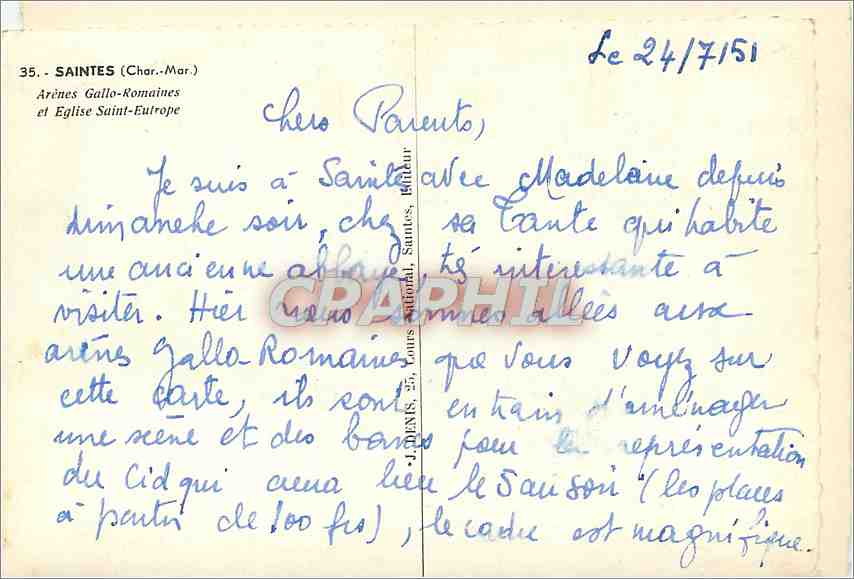 35. - SAINTES (Char.-Mar.)
Arènes Gallo-Romaines
et Eglise Saint-Eutrope
Le 24/7/51
Chers Parents,
Je suis à Sainte avec Madelaine depuis
dimanche soir, chez sa Tante qui habite
une ancienne abbaye, té interessante à
visiter. Hier nous sommes allées aux
arènes Gallo-Romaines que vous voyez sur
cette carte, ils sont en train d'aménager
une scène et des bancs pour la représentation
du Cid qui aura lieu le 5 au soir (les places
à partir de 100 frs), le cadre est magnifique.
J. DENIS, 25, Cours National, Saintes, Editeur
CPARAMA